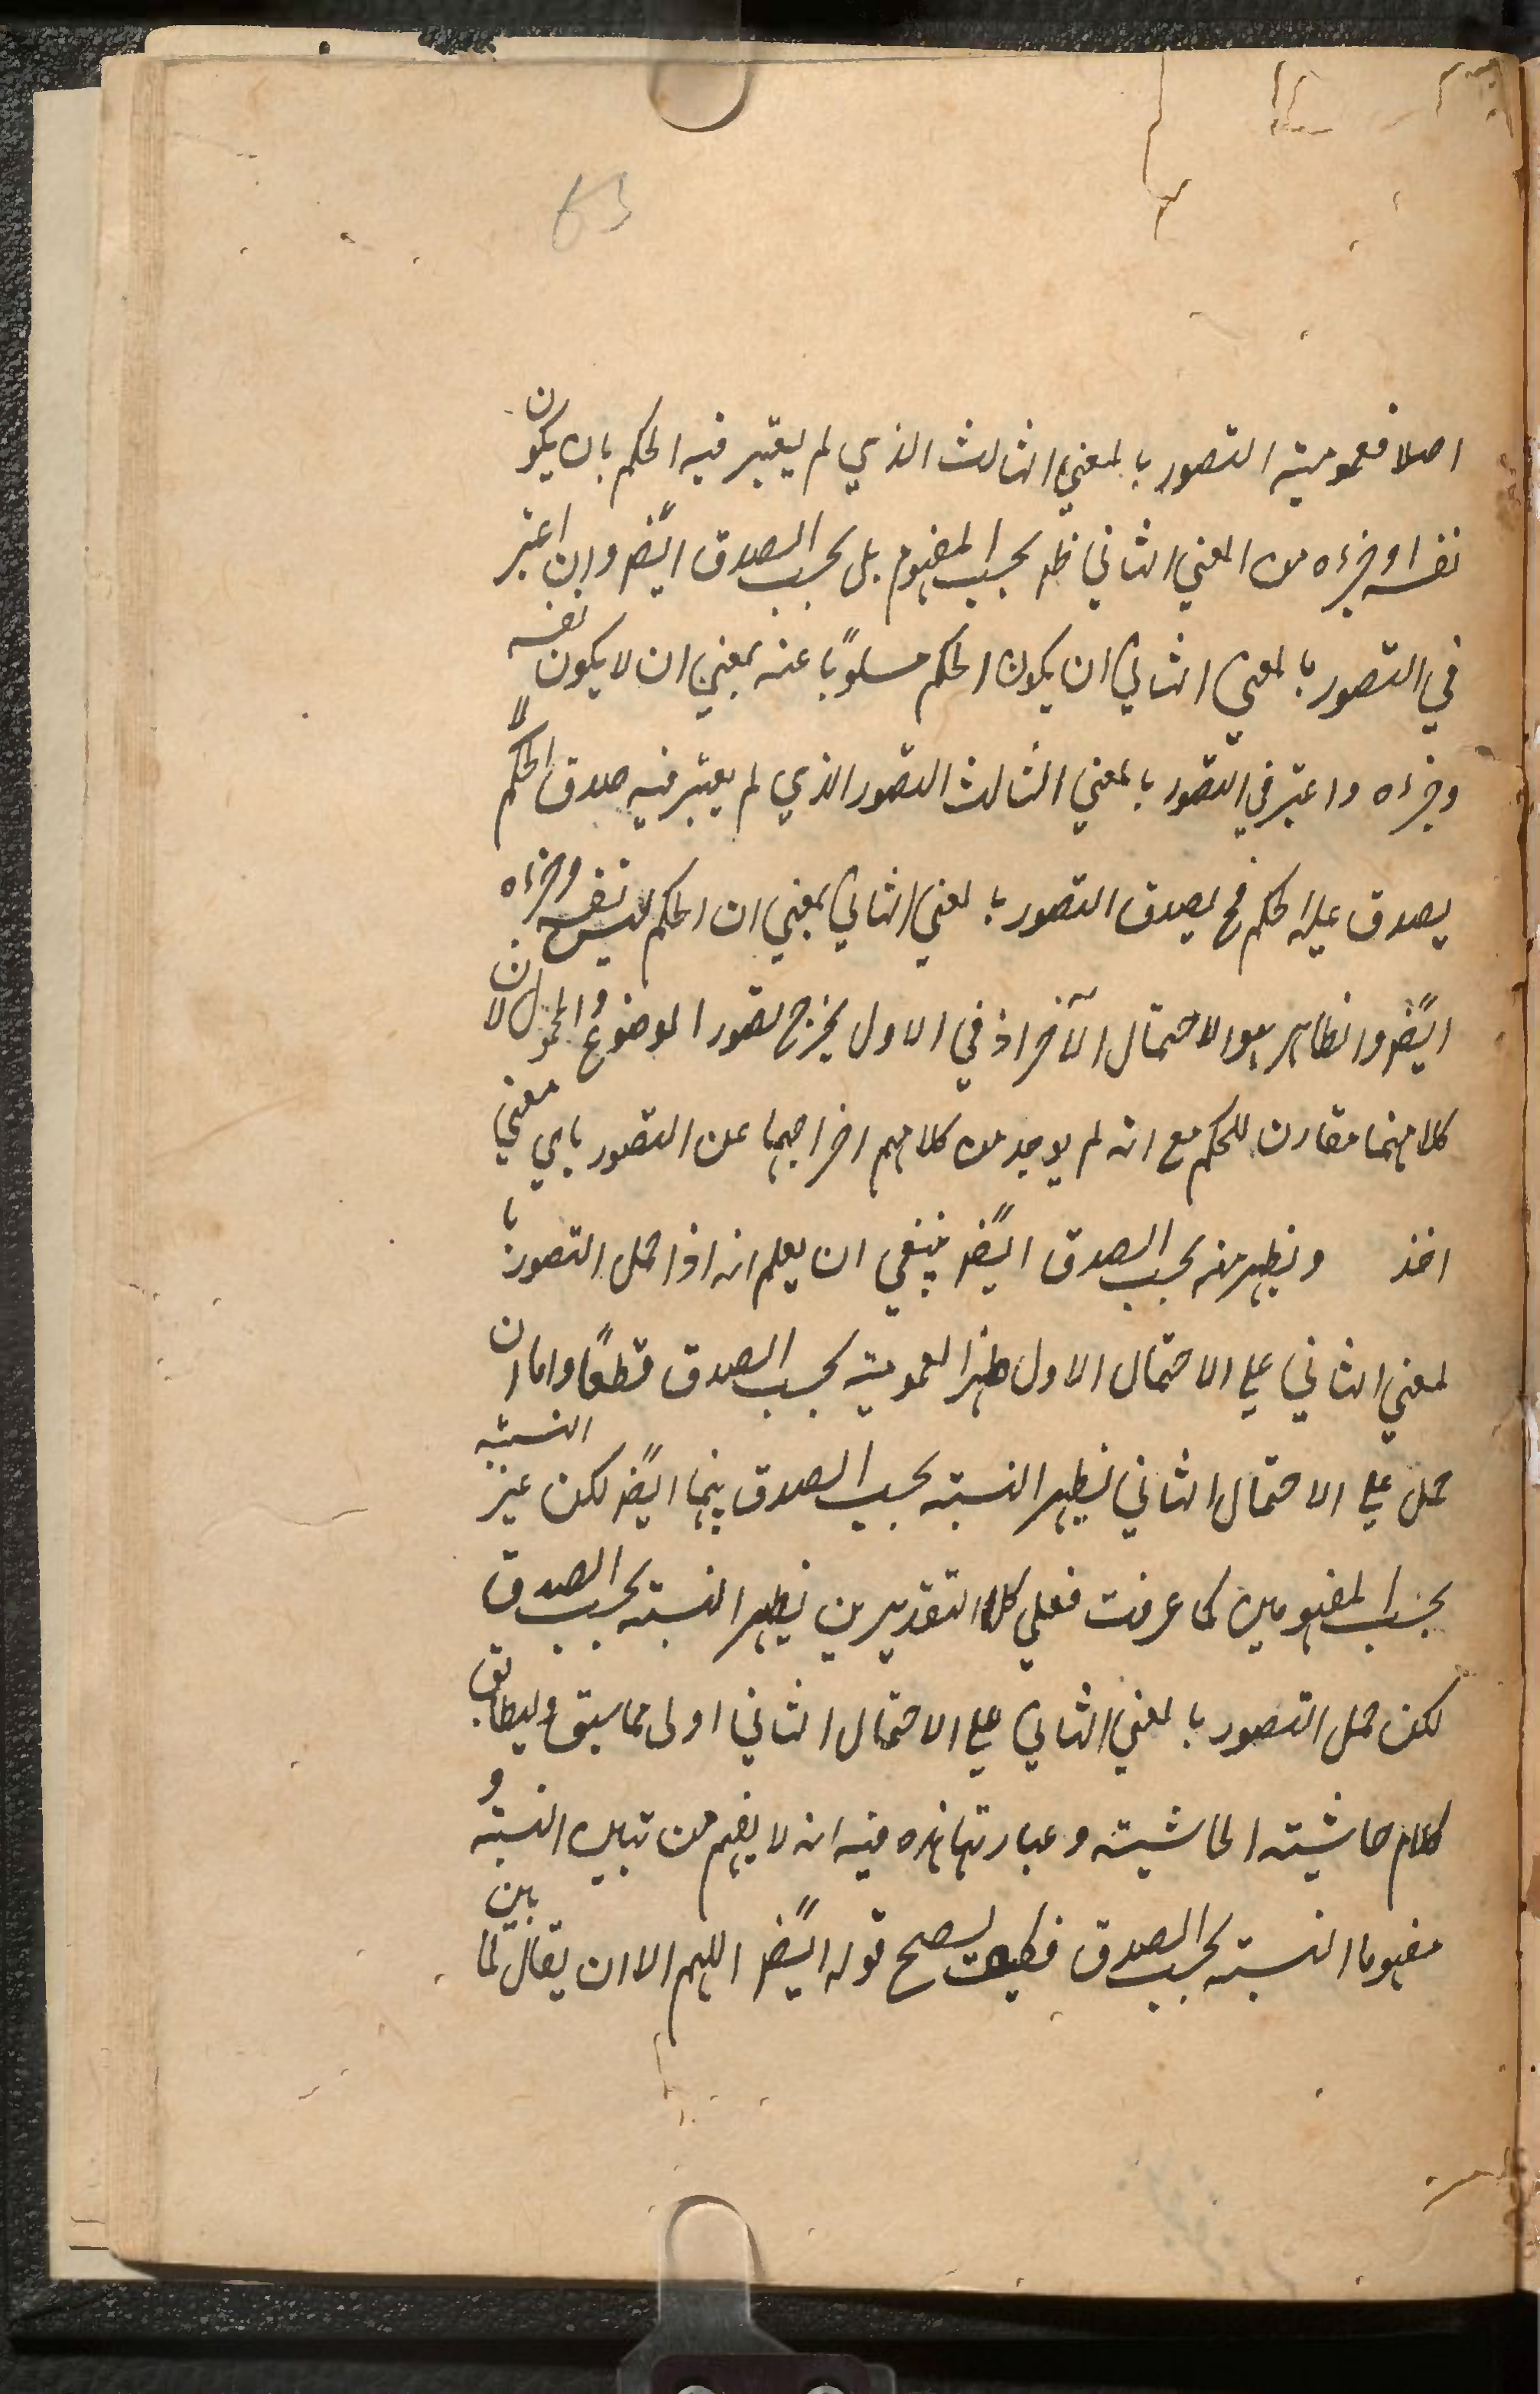 63
اصلا فعمومية التصور بالمعنى الثالث الذي لم يعتبر فيه الحكم بان يكون
نفسه او جزءه من المعنى الثاني ظ بحسب المفهوم بل بحسب الصدق ايضً وان اعتبر
في التصور بالمعنى الثاني ان يكون الحكم مسلوبًا عنه بمعنى ان لا يكون نفسه
وجزءه واعتبر في التصور بالمعنى الثالث التصور الذي لم يعتبر فيه صدق الحكم لا
يصدق عليه الحكم فح يصدق التصور بالمعنى الثاني بمعنى ان الحكم ليس نفسه وجزءه
ايضً والظاهر هو الاحتمال الآخر اذ في الاول يخرج تصور الموضوع والمحمول لان
كلا منهما مقارن للحكم مع انه لم يوجد من كلامهم اخراجهما عن التصور باي معنى
اخذ ونظهر منه بحسب الصدق ايضً ينبغي ان يعلم انه اذا حمل التصور با
لمعنى الثاني على الاحتمال الاول ظهر العمومية بحسب الصدق قطعًا واما ان
حمل على الاحتمال الثاني نظهر النسبة بحسب الصدق بينهما ايضً لكن غير النسبة
بحسب المفهومين كما عرفت فعلى كلا التقديرين نظهر النسبة بحسب الصدق
لكن حمل التصور بالمعنى الثاني على الاحتمال الثاني اولى مما سبق وليطابق
كلام حاشية الحاشية وعبارتها هذه فيه انه لا يفهم من تباين النسبة و
مفهوما النسبة بحسب الصدق فكيف يصح قوله ايضً اللهم الا ان يقال لما بين